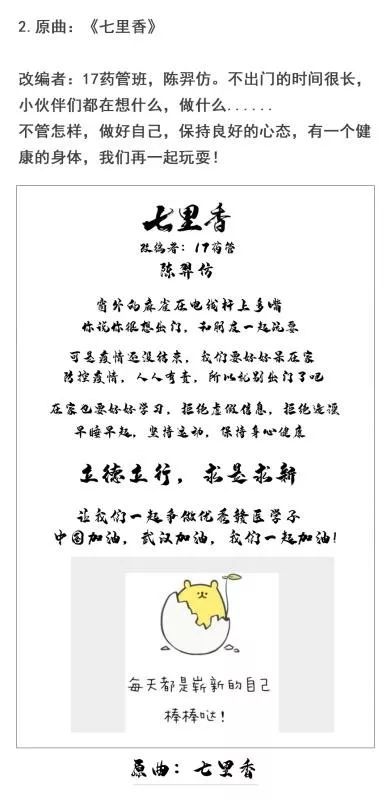 2.原曲：《七里香》
改编者：17药管班，陈羿仿。不出门的时间很长，
小伙伴们都在想什么，做什么......
不管怎样，做好自己，保持良好的心态，有一个健
康的身体，我们再一起玩耍！
七里香
改编者：17药管
陈羿仿
窗外的麻雀在电线杆上多嘴
你说你很想出门，和朋友一起玩耍
可是疫情还没结束，我们要好好呆在家
防控疫情，人人有责，所以就别出门了吧
在家也要好好学习，拒绝虚假信息，拒绝造谣
早睡早起，坚持运动，保持身心健康
立德立行，求是求新
让我们一起争做优秀赣医学子
中国加油，武汉加油，我们一起加油！
每天都是崭新的自己
棒棒哒！
原曲：七里香